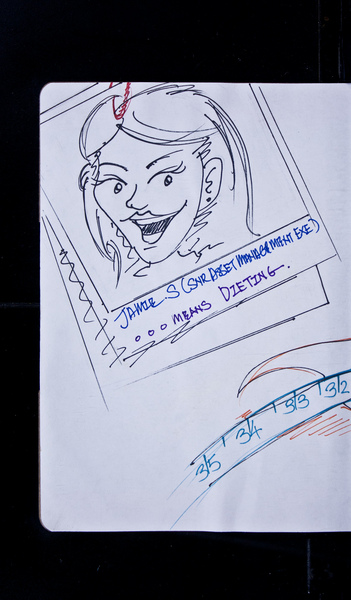 JAMIE.S (SNR ASSET MANAGEMENT EXE)
... MEANS DIETING.
3/5 3/4 3/3 3/2